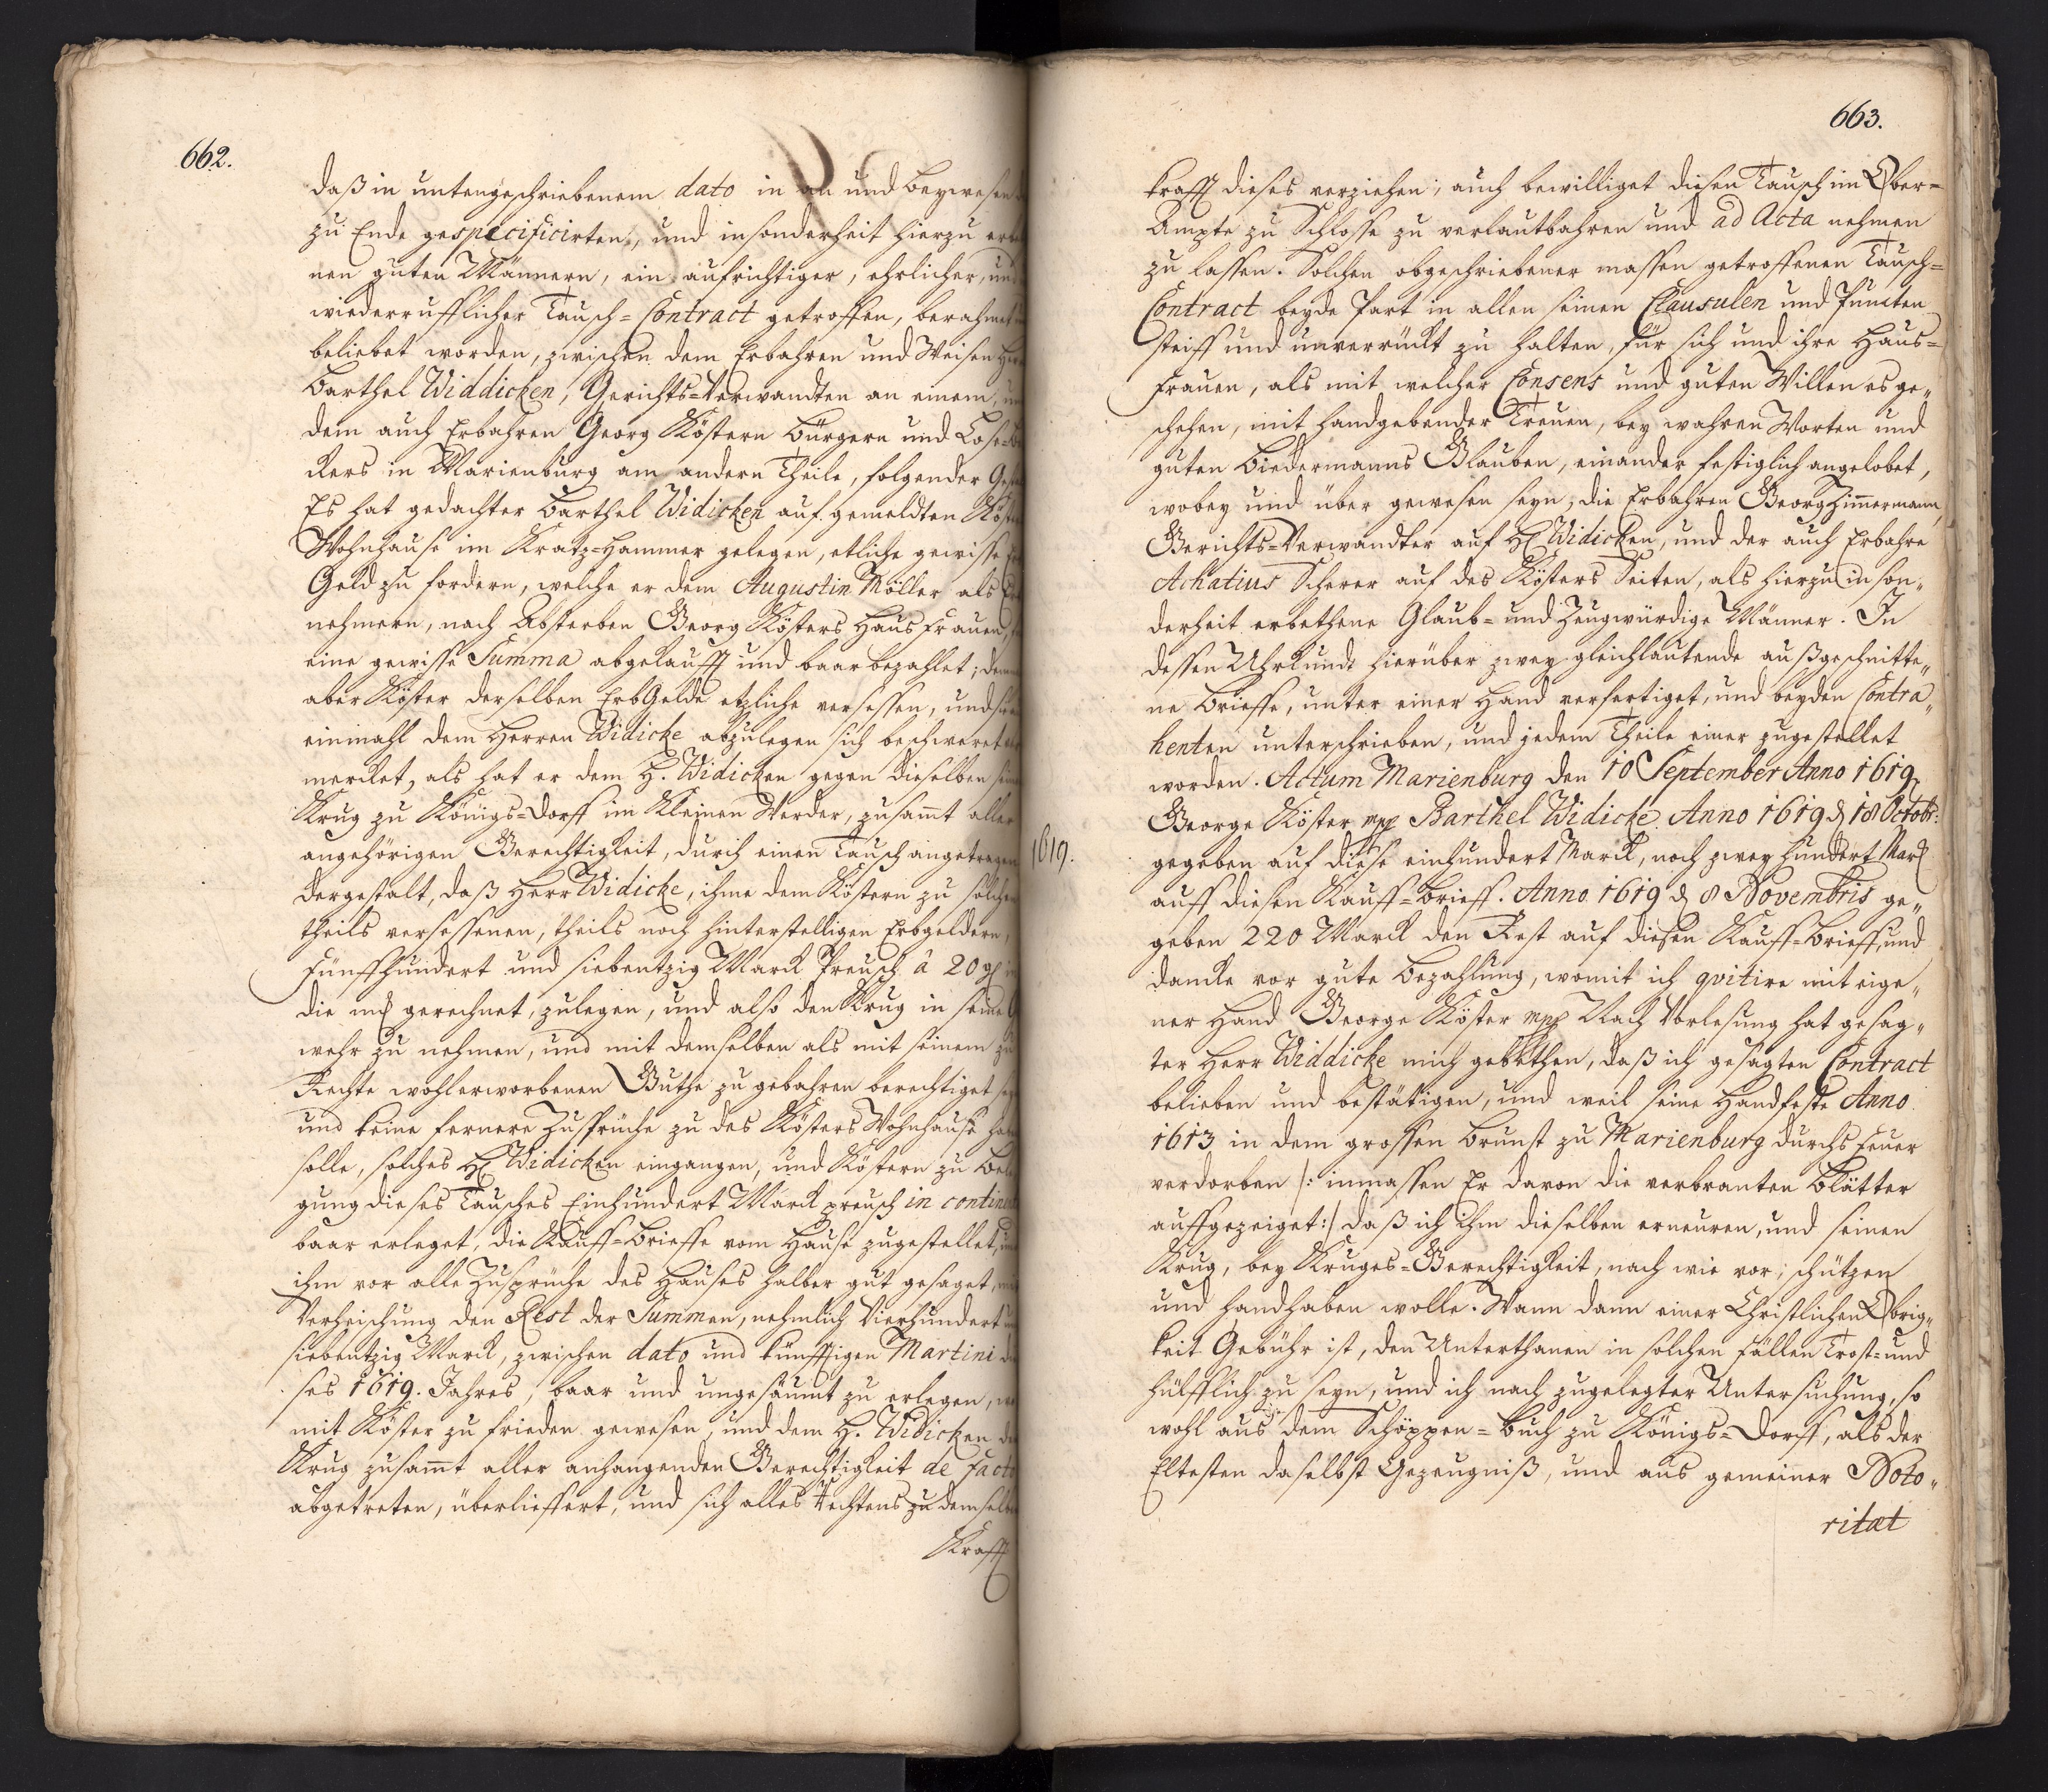 662.
daß in untengeschriebenem dato in an und beywesen
zu Ende gespecificirten, und insonderheit hierzu
nen guten Männern, ein aufrichtiger, ehrlicher, un
wiederrufflicher Tausch-Contract getroffen, berahmet
beliebet worden, zwischen dem Erbahren und Weisen
Barthel Widdicken, Gerichts-Verwandten an einem,
dem auch Erbahren Georg Köstern Bürgern und
kers in Marienburg am andern Theile, folgender
Es hat gedachter Barthel Widicken auf gemeldten
Wohnhause im Kratz-Hammer gelegen, etliche gewisse
Geld zu fordern, welche er dem Augustin Möller als
nehmern, nach Absterben Georg Kösters Haus Frauen,
eine gewisse Summa abgekaufft und baar bezahlet;
aber Köster derselben Erb Gelde etzliche versessen, und
einmahl dem Herren Widicke abzulegen sich beschweret
mercket, als hat er dem H. Widicken gegen dieselben
Krug zu Königs-Dorff im Kleinen Werder, zusamt aller
angehörigen Gerechtigkeit, durch einen Tausch angetragen
dergestalt, daß Herr Widicke, ihme dem Köstern zu solchen
theils versessenen, theils noch hinterstelligen Erbgeldern,
Fünffhundert und siebentzig Marck Preusch â 20 gl
die mck gerechnet, zulegen, und also den Krug in seine
wehr zu nehmen, und mit demselben als mit seinem zu
Rechte wohlerworbenen Guthe zu gebahren berechtiget
und keine fernere Zusprüche zu des Kösters Wohnhause
solle, solches H Widicken eingangen, und Köstern zu
gung dieses Tausches Einhundert Marck preusch in
baar erleget, die Kauff-Brieffe vom Hause zugestellet,
ihm vor alle Zusprüche des Hauses halber gut gesaget,
Verheischung den Rest der Summen, nehmlich Vierhundert
siebentzig Marck, zwischen dato und künfftigen Martini
ses 1619. Jahres, baar und ungesäumt zu erlegen,
mit Köster zu frieden gewesen, und dem H. Widicken
Krug zusamt aller anhangenden Gerechtigkeit de facto
abgetreten, überlieffert, und sich alles Rechtens zu demselben
Krafft
663.
krafft dieses verziehen, auch bewilliget diesen Tausch im Ober-
Ampte zu Schlosse zu verlautbahren und ad Acta nehmen
zu lassen. Solchen obgeschriebener massen getroffenen Tausch-
Contract beyde Part in allen seinen Clausulen und Puncten
steiff und unverrückt zu halten, für sich und ihre Haus-
frauen, als mit welcher Consens und guten Willen es ge„
schehen, mit handgebender Treuen, bey wahren Worten und
guten Biedermanns Glauben, einander festiglich angelobet,
wobey und über gewesen seyn, die Erbahren Georg Zimmermann,
Gerichts-Verwandter auf H Widicken, und der auch Erbahre
Achatius Scherer auf des Kösters Seiten, als hierzu inson„
derheit erbethene Glaub- und Zeugwürdige Männer. In
dessen Uhrkunde hierüber zwey gleichlautende außgeschnitte„
ne Brieffe, unter einer Hand verfertiget, und beyden Contra„
henten unterschrieben, und jedem Theile einer zugestellet
worden. Actum Marienburg den 10 September Anno 1619.
1619.
George Köster mpp Barthel Widicke. Anno 1619 d 18 Octobr:
gegeben auf diese einhundert Marck, noch zwey hundert Marck
auff diesen Kauff-Brieff. Anno 1619 d 8 Novembris ge„
geben 220 Marck den Rest auf diesen Kauff-Brieff, und
dancke vor gute Bezahlung, womit ich qvitire mit eige„
ner Hand George Köster mpp Nach Vorlesung hat gesag„
ter Herr Widdicke mich gebethen, daß ich gesagten Contract
belieben und bestätigen, und weil seine Handfeste Anno
1613 in dem grossen Brunst zu Marienburg durchs Feuer
verdorben /: inmassen Er davon die verbranten Blätter
auffgezeiget:/ daß ich Ihm dieselben erneuren, und seinen
Krug, bey Kruges-Gerechtigkeit, nach wie vor, schützen
und handhaben wolle. Wann dann einer Christlichen Obrig„
keit Gebühr ist, den Unterthanen in solchen Fällen Trost- und
hülfflich zu seyn, und ich nach zugelegter Untersuchung, so
wohl aus dem Schöppen-Buch zu Königs-Dorff, als der
Eltesten daselbst Gezeugniß, und aus gemeiner Noto„
ritæt